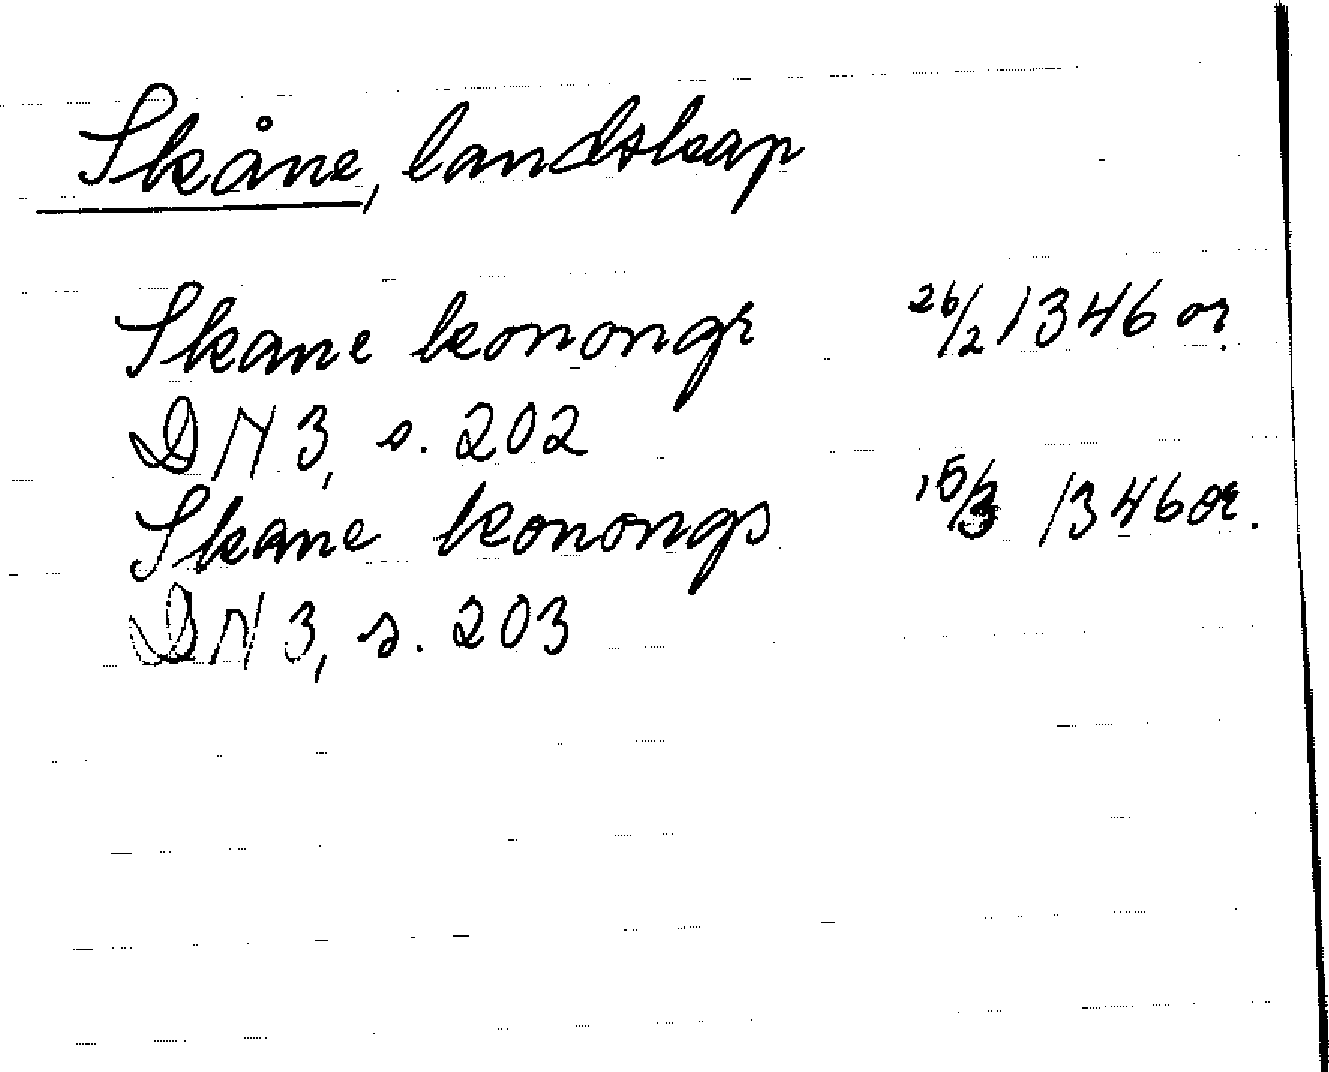 Skåne, landskap
Skane konongr 26/2 1346 or.
DN 3, s. 202
Skane konongs 15/3 1346 or.
DN 3, s. 203